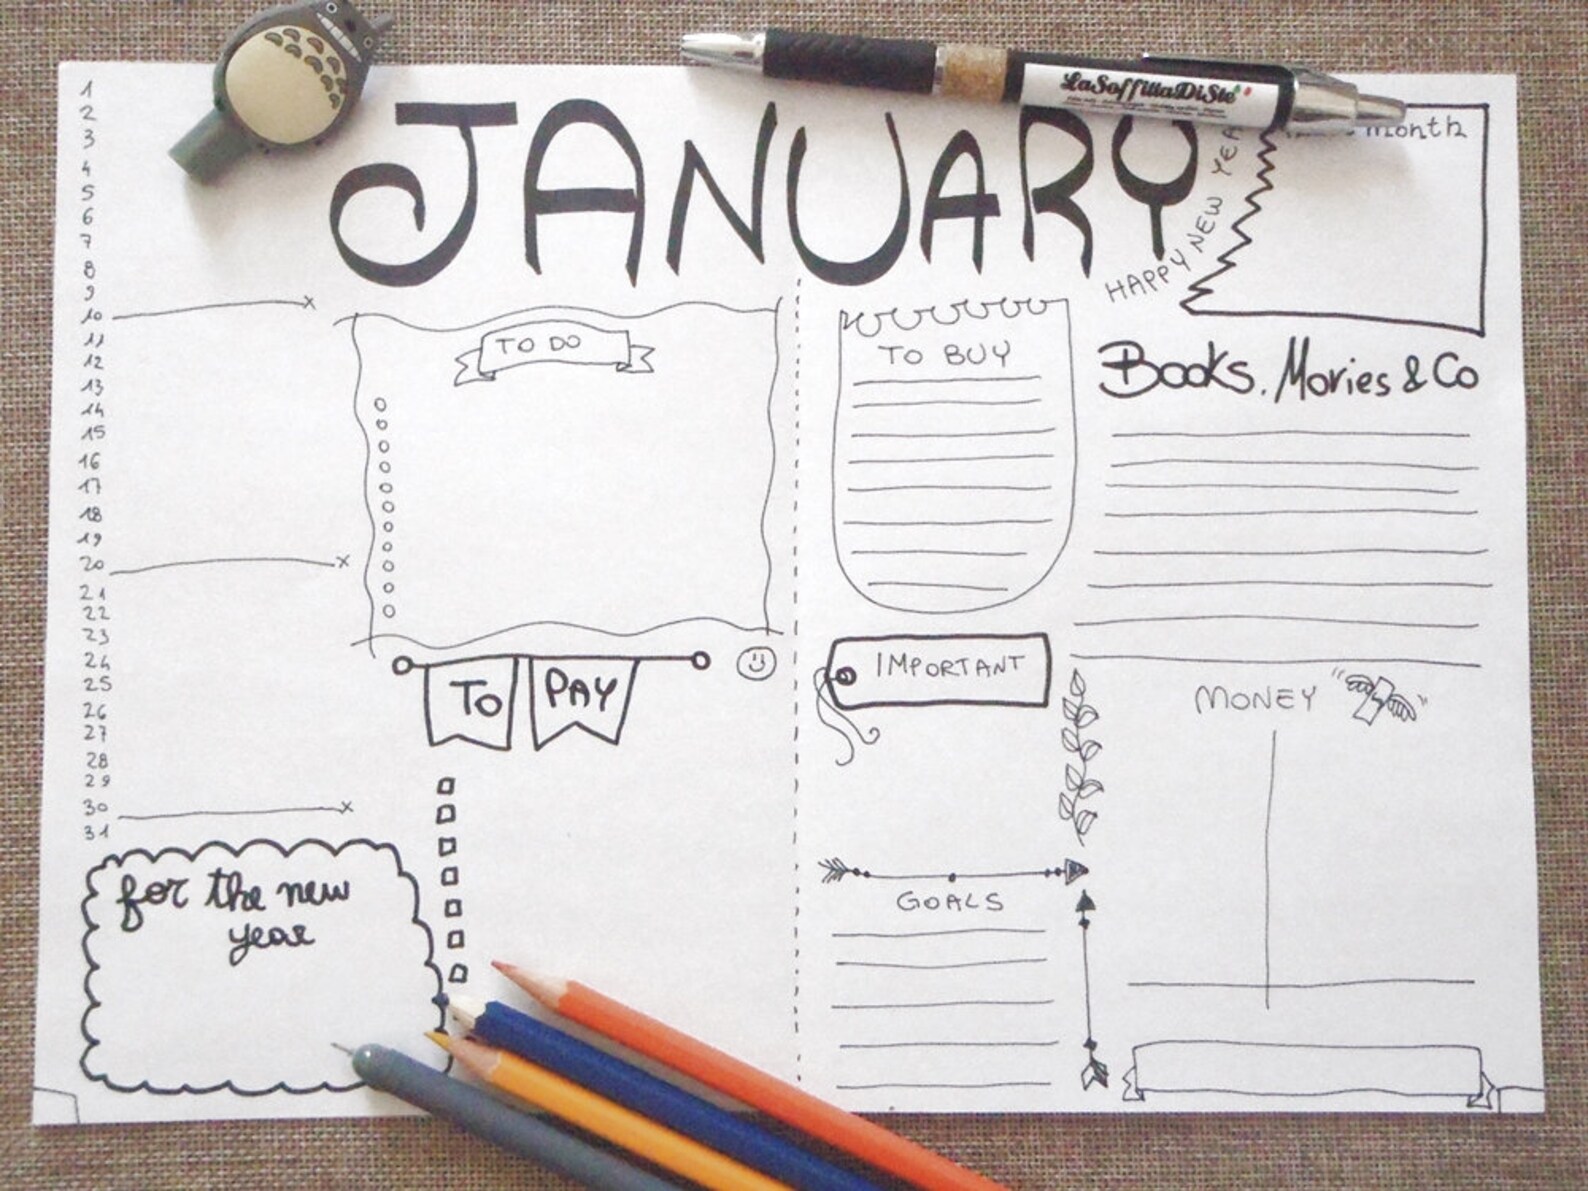 LaSoffittaDiSte
JANUARY
HAPPY NEW YEA
month
1
2
3
4
5
6
7
8
9
10
11
12
13
14
15
16
17
18
19
20
21
22
23
24
25
26
27
28
29
30
31
TO DO
TO BUY
Books, Movies & Co
TO PAY
IMPORTANT
MONEY
GOALS
for the new
year